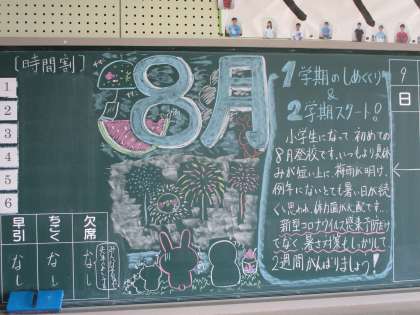 [時間割]
1
2
3
4
5
6
8月
1学期のしめくくり
&
2学期スタート!
小学生になって初めての
8月登校です。いつもより夏休
みが短い上に、梅雨が明け、
例年にないとても暑い日が続
くと思われ、体力面が心配です…
新型コロナウイルス感染予防だけ
でなく暑さ対策もしっかりして
2週間がんばりましょう!
9
日
欠席
ちこく
早引
なし
なし
なし